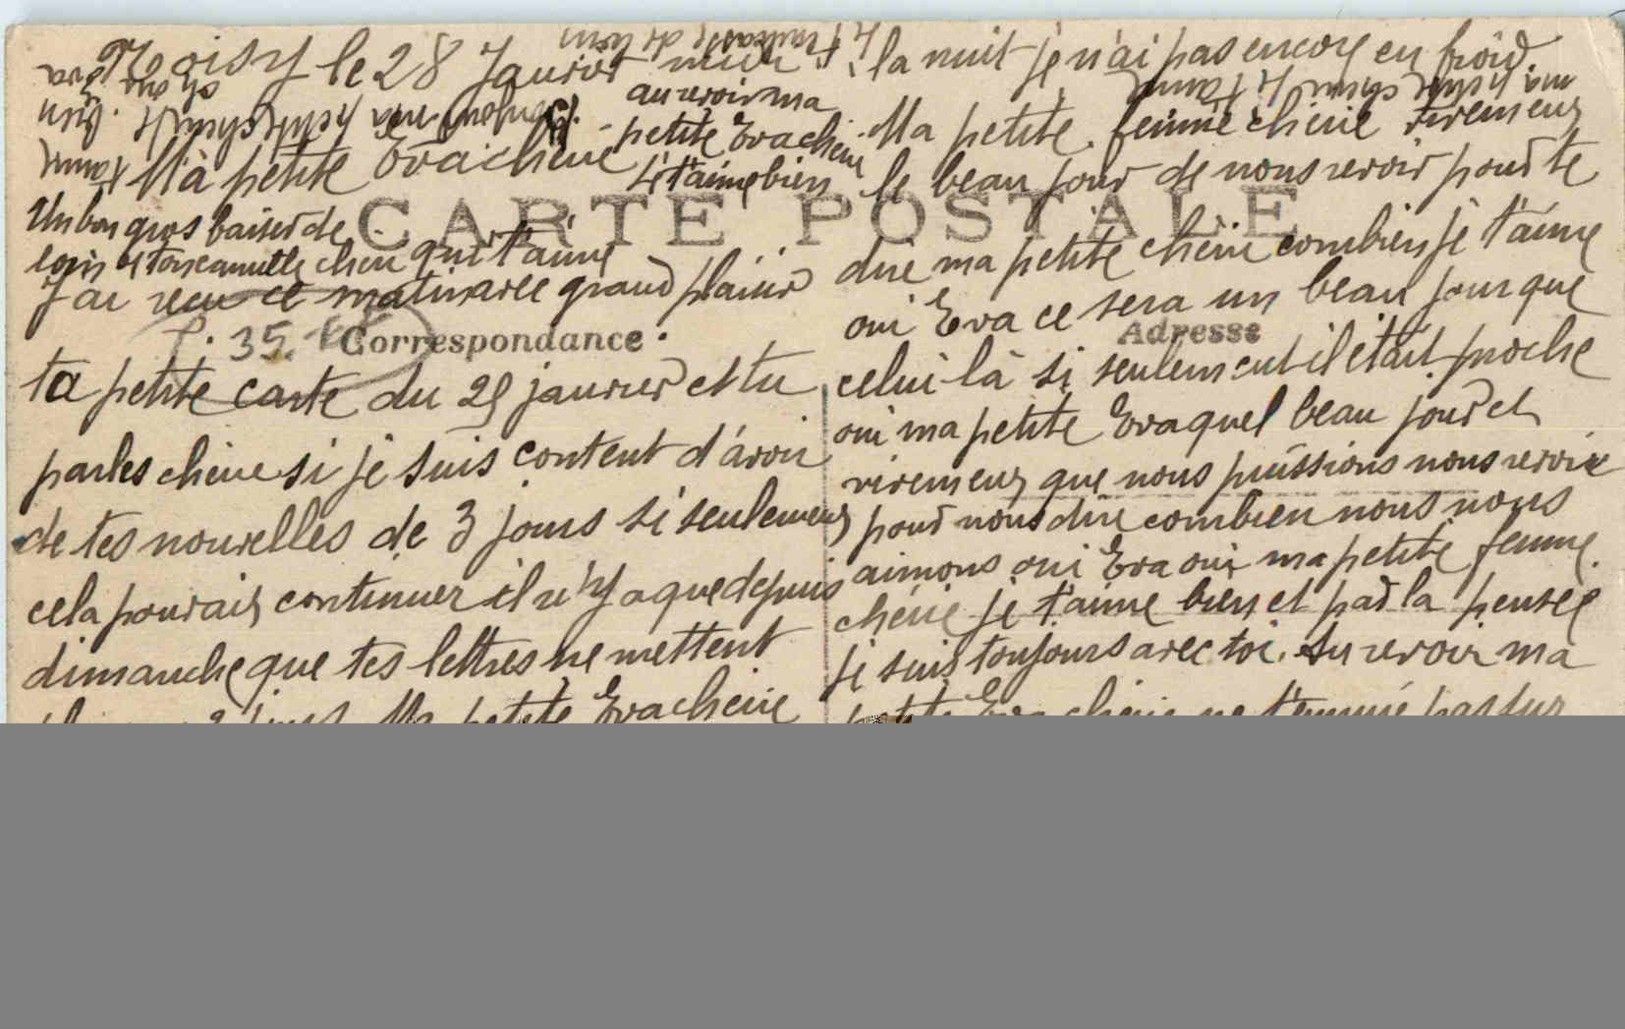 Moisy le 28 Janvier midi
au revoir ma
petite Eva chérie
Ma petite Eva chérie
je t'aime bien
CARTE POSTALE
Un bon gros baiser de
loin et ton camille chéri qui t'aime
J'ai reçu ce matin avec grand plaisir
35.
Correspondance.
ta petite carte du 25 janvier et tu
parles chérie si je suis content d'avoir
de tes nouvelles de 3 jours si seulement
cela pourais continuer il n'y a que depuis
dimanche que tes lettres ne mettent
Ma petite Eva chérie
la nuit je n'ai pas encore eu froid
ma petite chérie je t'aime
Ma petite femme chérie vivement
le beau jour de nous revoir pour te
dire ma petite chérie combien je t'aime
oui Eva ce sera un beau jour que
Adresse
celui-là si seulement il était proche
oui ma petite Eva quel beau jour et
vivement que nous puissions nous revoir
pour nous dire combien nous nous
aimons oui Eva oui ma petite femme
chérie je t'aime bien et par la pensée
je suis toujours avec toi. Au revoir ma
petite Eva chérie ne t'ennuie pas sur